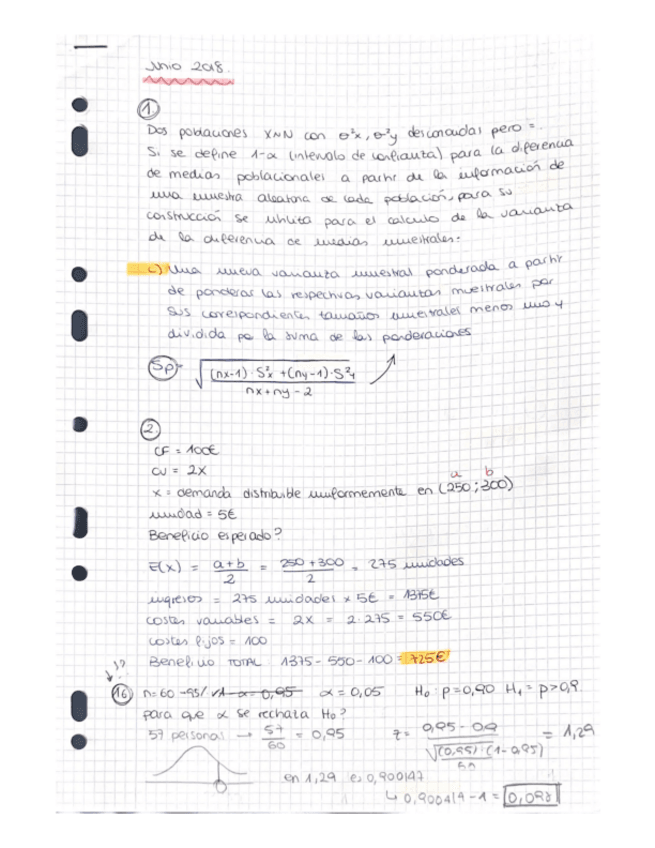 Junio 2018.
①
Dos poblaciones X~N con σ²x, σ²y desconocidas pero =.
Si se define 1-α (intervalo de confianza) para la diferencia
de medias poblacionales a partir de la información de
una muestra aleatoria de cada población, para su
construcción se utiliza para el calculo de la varianza
de la diferencia de medias muestrales:
c) Una nueva varianza muestral ponderada a partir
de ponderar las respectivas varianzas muestrales por
sus correspondientes tamaños muestrales menos uno y
dividida por la suma de las ponderaciones
Sp = √((nx-1)·S²x + (ny-1)·S²y / nx+ny-2)
②
CF = 100€
CV = 2x
a b
x = demanda distribuible uniformemente en (250;300)
unidad = 5€
Beneficio esperado?
E(x) = a+b/2 = 250+300/2 = 275 unidades
ingresos = 275 unidades x 5€ = 1375€
costes variables = 2x = 2·275 = 550€
costes fijos = 100
Beneficio TOTAL 1375-550-100 = 725€
¿?
⑯ n=60 -95/ 1-α = 0,95 α = 0,05 H₀: p=0,90 H₁ = p>0,9
para que α se rechaza H₀?
57 personas → 57/60 = 0,95 z = 0,95 - 0,9 / √((0,95)·(1-0,95)/60) = 1,29
en 1,29 es 0,900147
↳ 0,900147 - 1 = 0,098